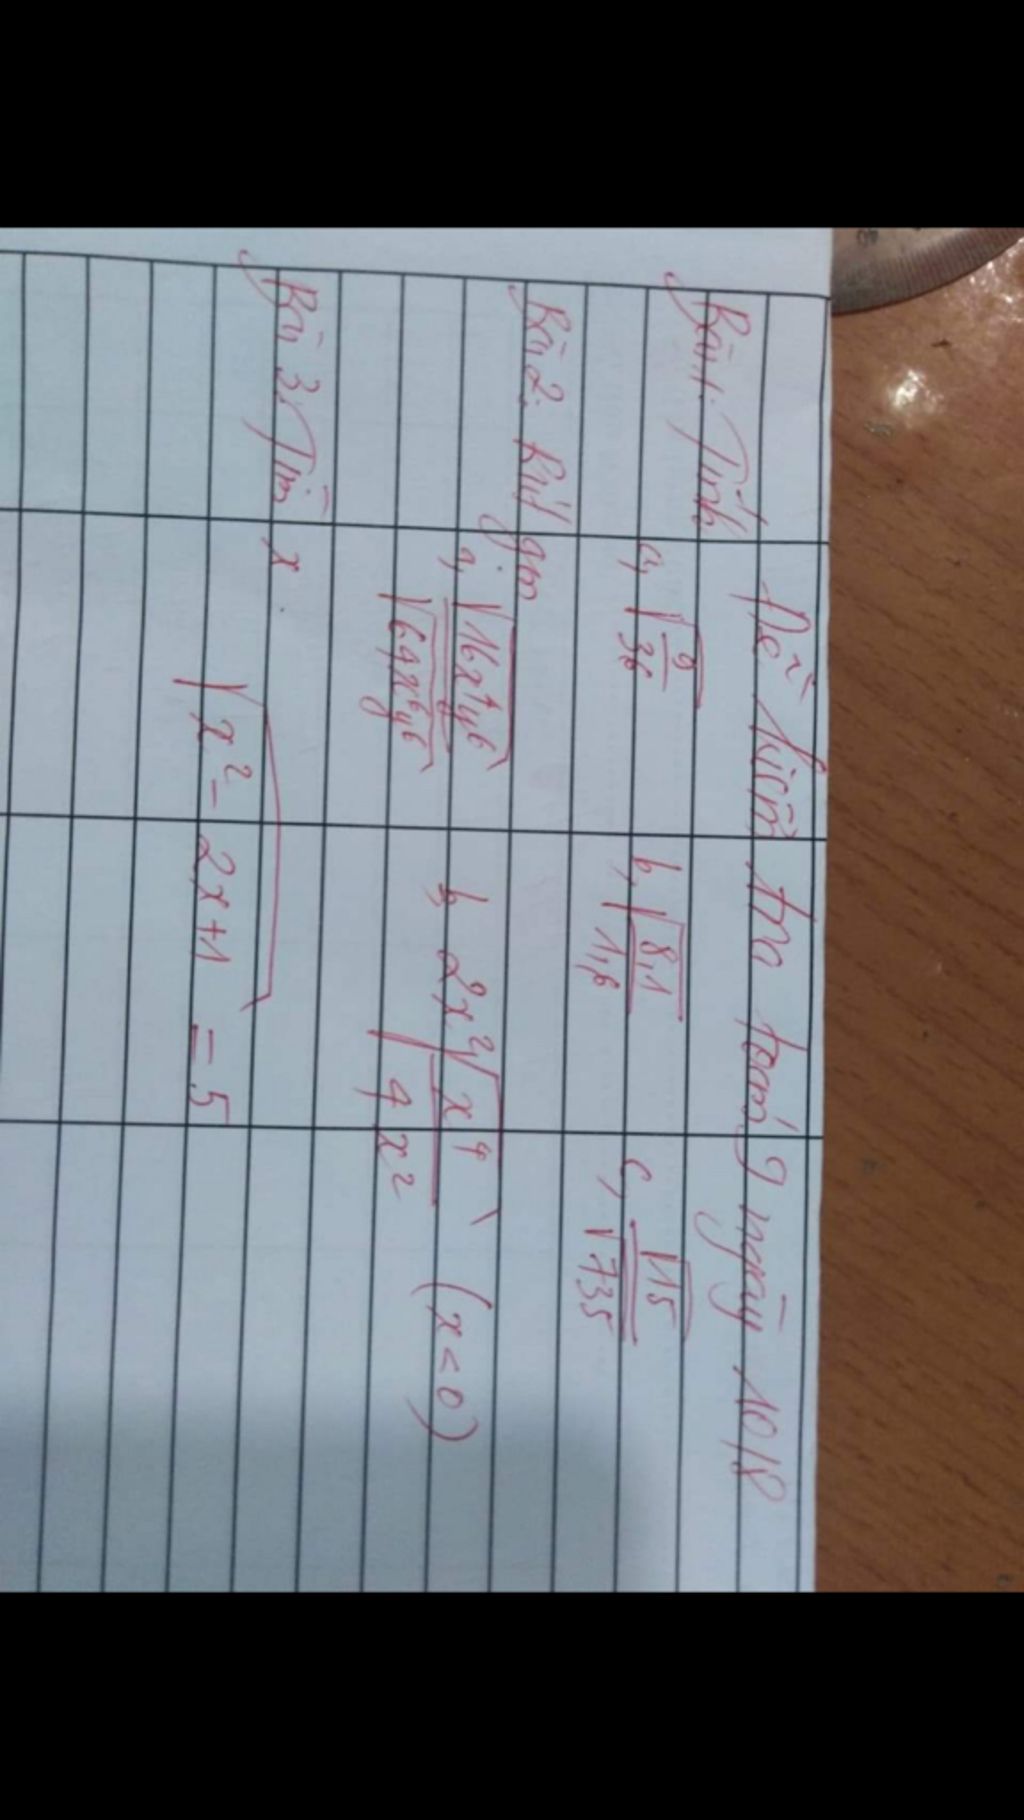 Đề kiểm tra toán 9 ngày 10/8
Bài 1. Tính
a, √(9/36) b, √(8,1/1,6) c, √15/√735
Bài 2. Rút gọn
a, √(16x⁴y⁶)/√(64x⁶y⁶) b, 2x²√(x⁴/4x²) (x<0)
Bài 3. Tìm x
√(x²-2x+1) = 5